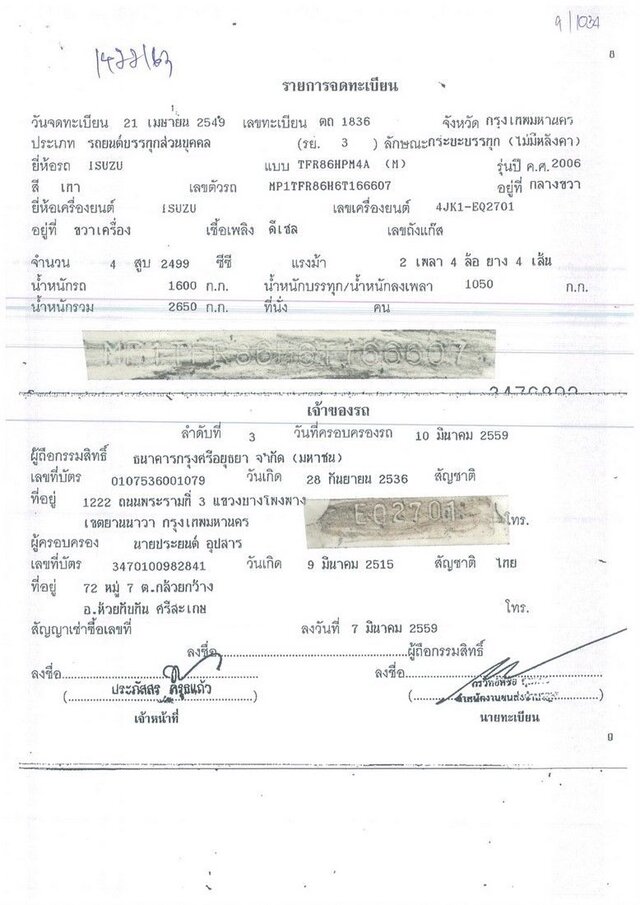 9/1034
1422/63
8
รายการจดทะเบียน
วันจดทะเบียน 21 เมษายน 2549 เลขทะเบียน ตถ 1836 จังหวัด กรุงเทพมหานคร
ประเภท รถยนต์บรรทุกส่วนบุคคล (รย. 3 ) ลักษณะกระบะบรรทุก (ไม่มีหลังคา)
ยี่ห้อรถ ISUZU แบบ TFR86HPM4A (M) รุ่นปี ค.ศ. 2006
สี เทา เลขตัวรถ MP1TFR86H6T166607 อยู่ที่ กลางขวา
ยี่ห้อเครื่องยนต์ ISUZU เลขเครื่องยนต์ 4JK1-EQ2701
อยู่ที่ ขวาเครื่อง เชื้อเพลิง ดีเซล เลขถังแก๊ส
จำนวน 4 สูบ 2499 ซีซี แรงม้า 2 เพลา 4 ล้อ ยาง 4 เส้น
น้ำหนักรถ 1600 ก.ก. น้ำหนักบรรทุก/น้ำหนักลงเพลา 1050 ก.ก.
น้ำหนักรวม 2650 ก.ก. ที่นั่ง คน
MP1TFR86H6T166607
เจ้าของรถ
ลำดับที่ 3 วันที่ครอบครองรถ 10 มีนาคม 2559
ผู้ถือกรรมสิทธิ์ ธนาคารกรุงศรีอยุธยา จำกัด (มหาชน)
เลขที่บัตร 0107536001079 วันเกิด 28 กันยายน 2536 สัญชาติ
ที่อยู่ 1222 ถนนพระรามที่ 3 แขวงบางโพงพาง
EQ2701
เขตยานนาวา กรุงเทพมหานคร โทร.
ผู้ครอบครอง นายประยนต์ อุปลาร
เลขที่บัตร 3470100982841 วันเกิด 9 มีนาคม 2515 สัญชาติ ไทย
ที่อยู่ 72 หมู่ 7 ต.กล้วยกว้าง
อ.ห้วยทับทัน ศรีสะเกษ โทร.
สัญญาเช่าซื้อเลขที่ ลงวันที่ 7 มีนาคม 2559
ลงชื่อ ผู้ถือกรรมสิทธิ์
ลงชื่อ ลงชื่อ
(ประภัสสร ครุฑแก้ว) ( )
เจ้าหน้าที่ นายทะเบียน